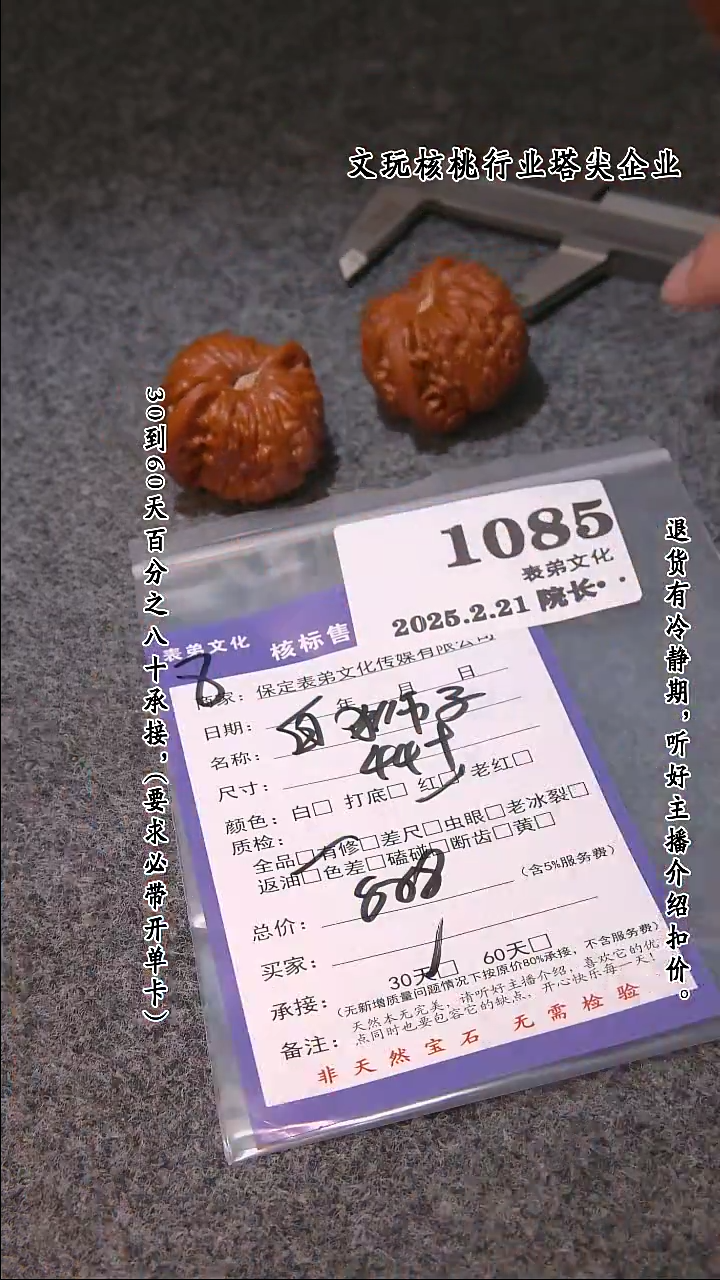 文玩核桃行业塔尖企业
30到60天百分之八十承接，（要求必带开单卡）
退货有冷静期，听好主播介绍扣价。
1085
表弟文化
2025.2.21 院长
表弟文化 核标售
8
商家：保定表弟文化传媒有限公司
日期： 年 月 日
名称： 狮子
尺寸： 44+
颜色：白□ 打底□ 红□ 老红□
质检：
全品□有修□差尺□虫眼□老冰裂□
返油□色差□磕碰□断齿□黄□
总价： 808 （含5%服务费）
买家：
承接： 30天□ 60天□
（无新增质量问题情况下按原价80%承接，不含服务费）
备注：天然本无完美，请听好主播介绍，喜欢它的优
点同时也要包容它的缺点，开心快乐每一天！
非天然宝石 无需检验